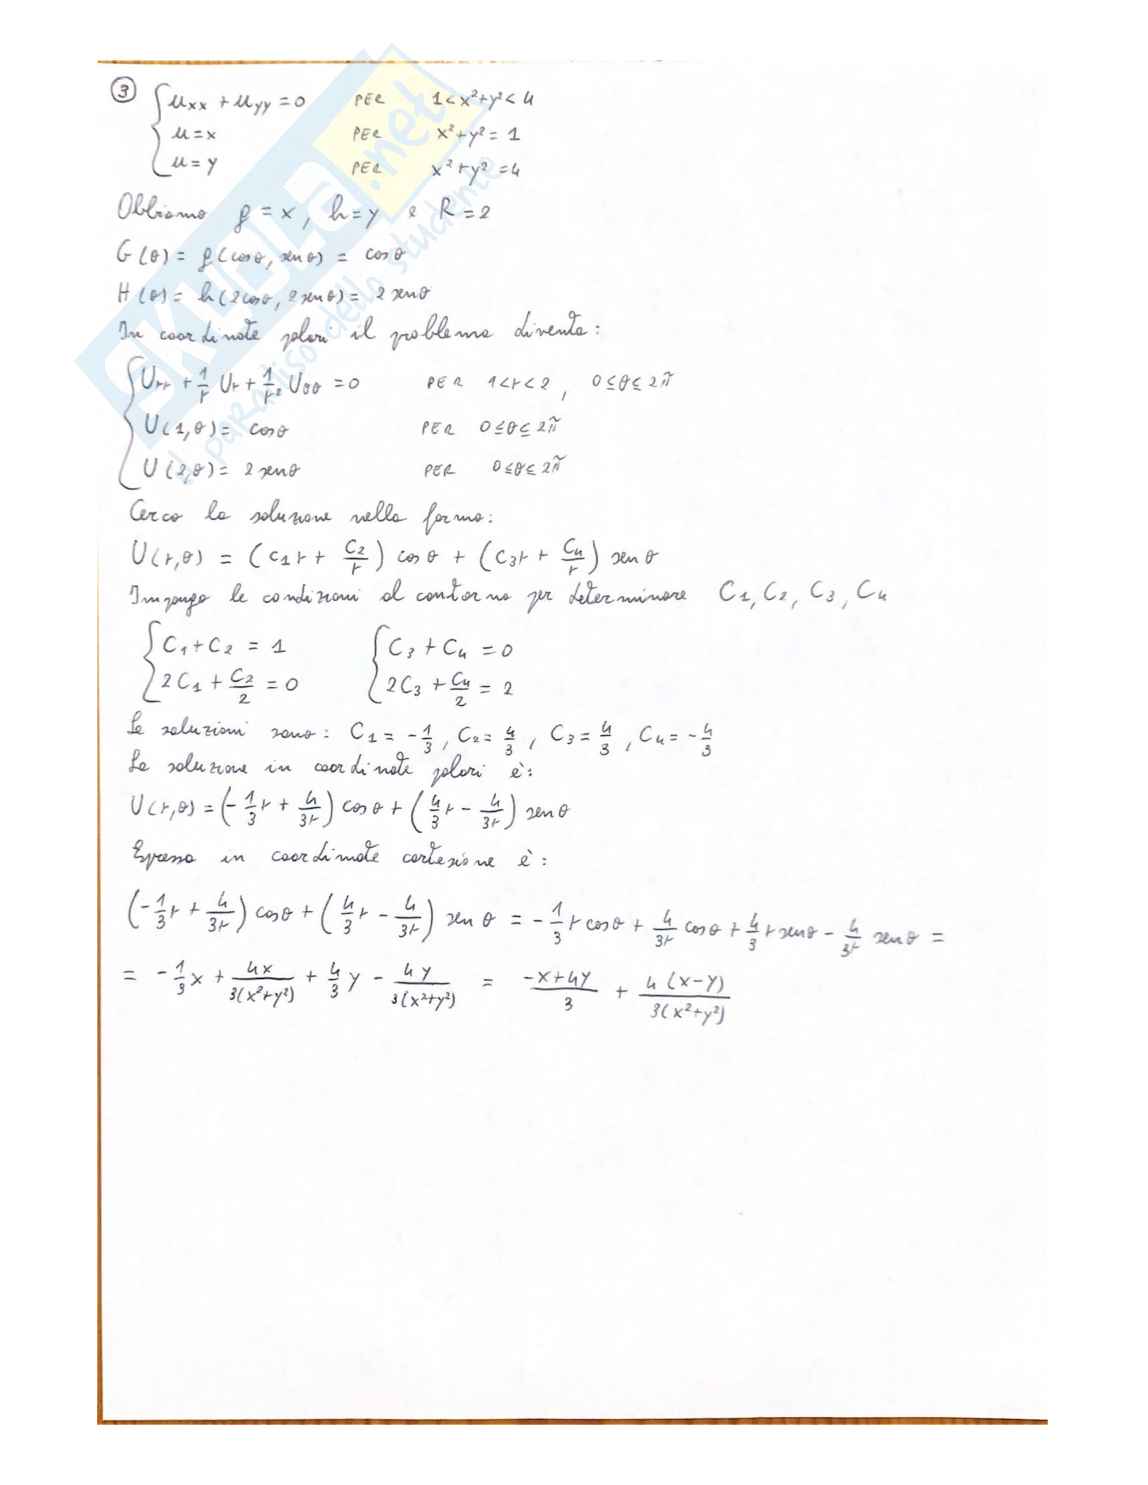 ③ { u_xx + u_yy = 0 PER 1 < x²+y² < 4
u = x PER x²+y² = 1
u = y PER x²+y² = 4
Abbiamo g = x, h = y e R = 2
G(θ) = g(cosθ, senθ) = cosθ
H(θ) = h(2cosθ, 2senθ) = 2senθ
In coordinate polari il problema diventa:
{ U_rr + 1/r U_r + 1/r² U_θθ = 0 PER 1<r<2, 0≤θ≤2π
U(1,θ) = cosθ PER 0≤θ≤2π
U(2,θ) = 2senθ PER 0≤θ≤2π
Cerco la soluzione nella forma:
U(r,θ) = (C₁r + C₂/r) cosθ + (C₃r + C₄/r) senθ
Impongo le condizioni al contorno per determinare C₁, C₂, C₃, C₄
{ C₁+C₂ = 1 { C₃+C₄ = 0
2C₁ + C₂/2 = 0 2C₃ + C₄/2 = 2
Le soluzioni sono: C₁ = -1/3, C₂ = 4/3, C₃ = 4/3, C₄ = -4/3
La soluzione in coordinate polari è:
U(r,θ) = (-1/3 r + 4/3r) cosθ + (4/3 r - 4/3r) senθ
Espressa in coordinate cartesiane è:
(-1/3 r + 4/3r) cosθ + (4/3 r - 4/3r) senθ = -1/3 r cosθ + 4/3r cosθ + 4/3 r senθ - 4/3r senθ =
= -1/3 x + 4x/3(x²+y²) + 4/3 y - 4y/3(x²+y²) = -x+4y/3 + 4(x-y)/3(x²+y²)
SKUOLA.net
il paradiso dello studente